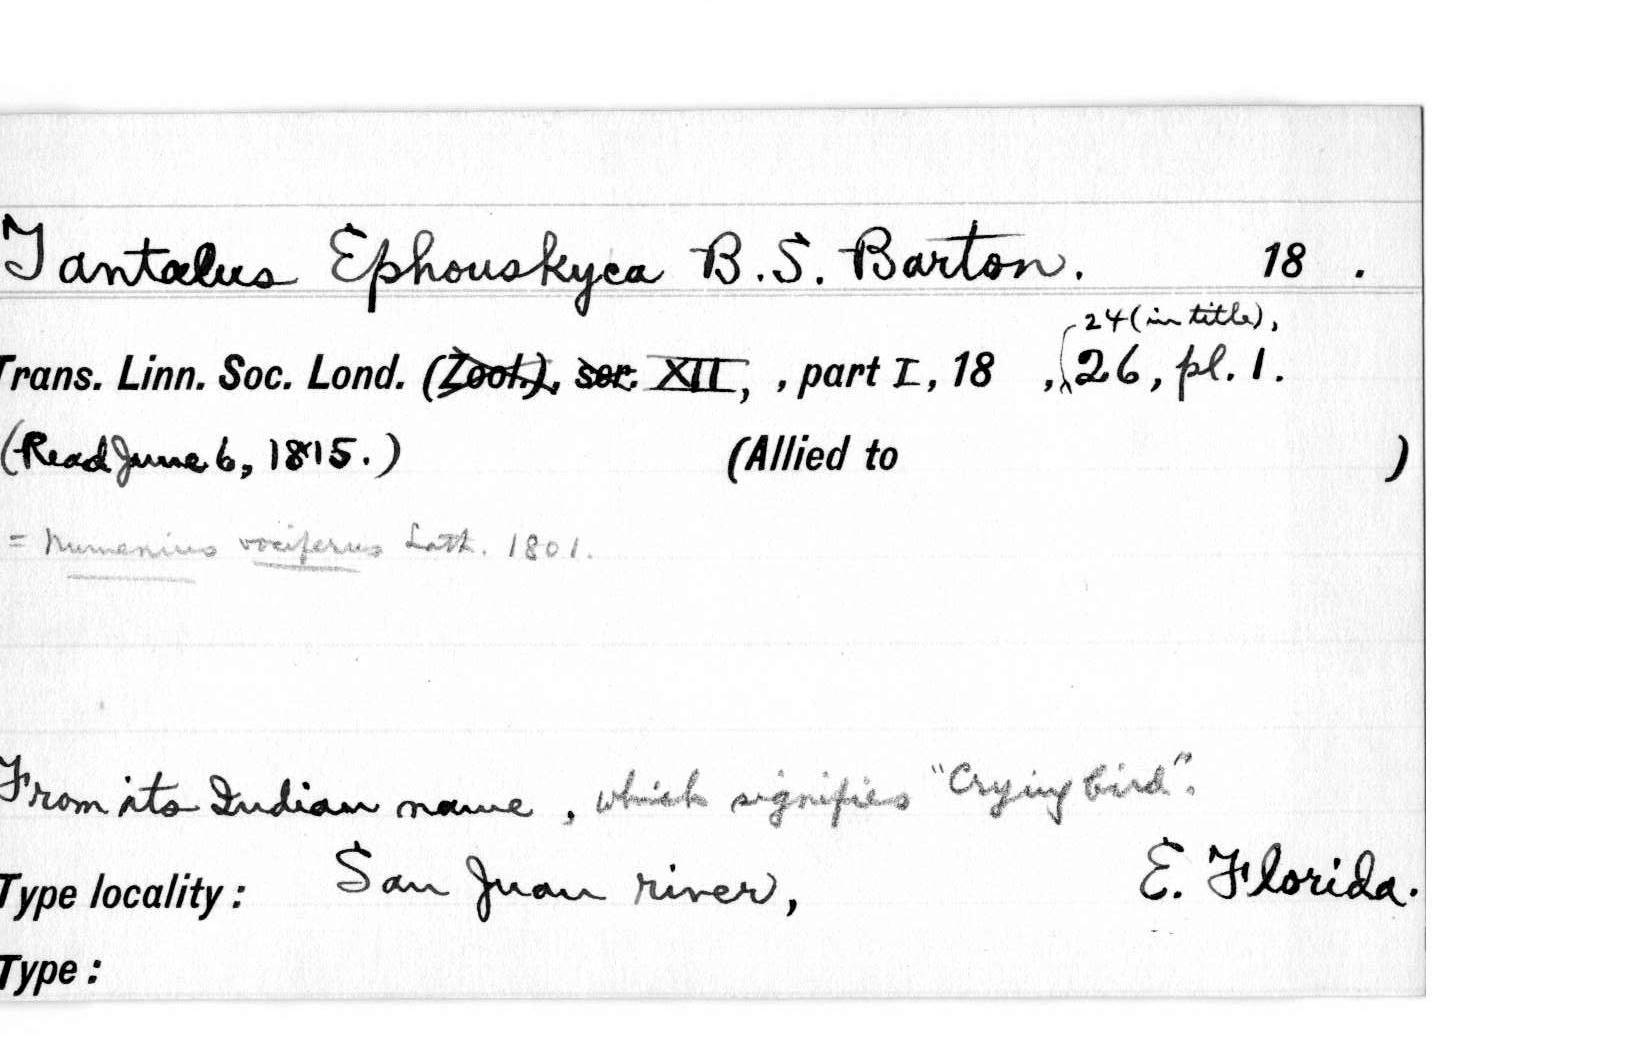 Tantalus Ephouskyca B.S. Barton. 18 .
24 (in title),
Trans. Linn. Soc. Lond. (Zool.), ser. XII, , part I, 18 , 26, pl. 1.
(Read June 6, 1815.) (Allied to )
= Numenius vociferus Lath. 1801.
From its Indian name, which signifies "Crying bird".
Type locality: San Juan river, E. Florida.
Type: